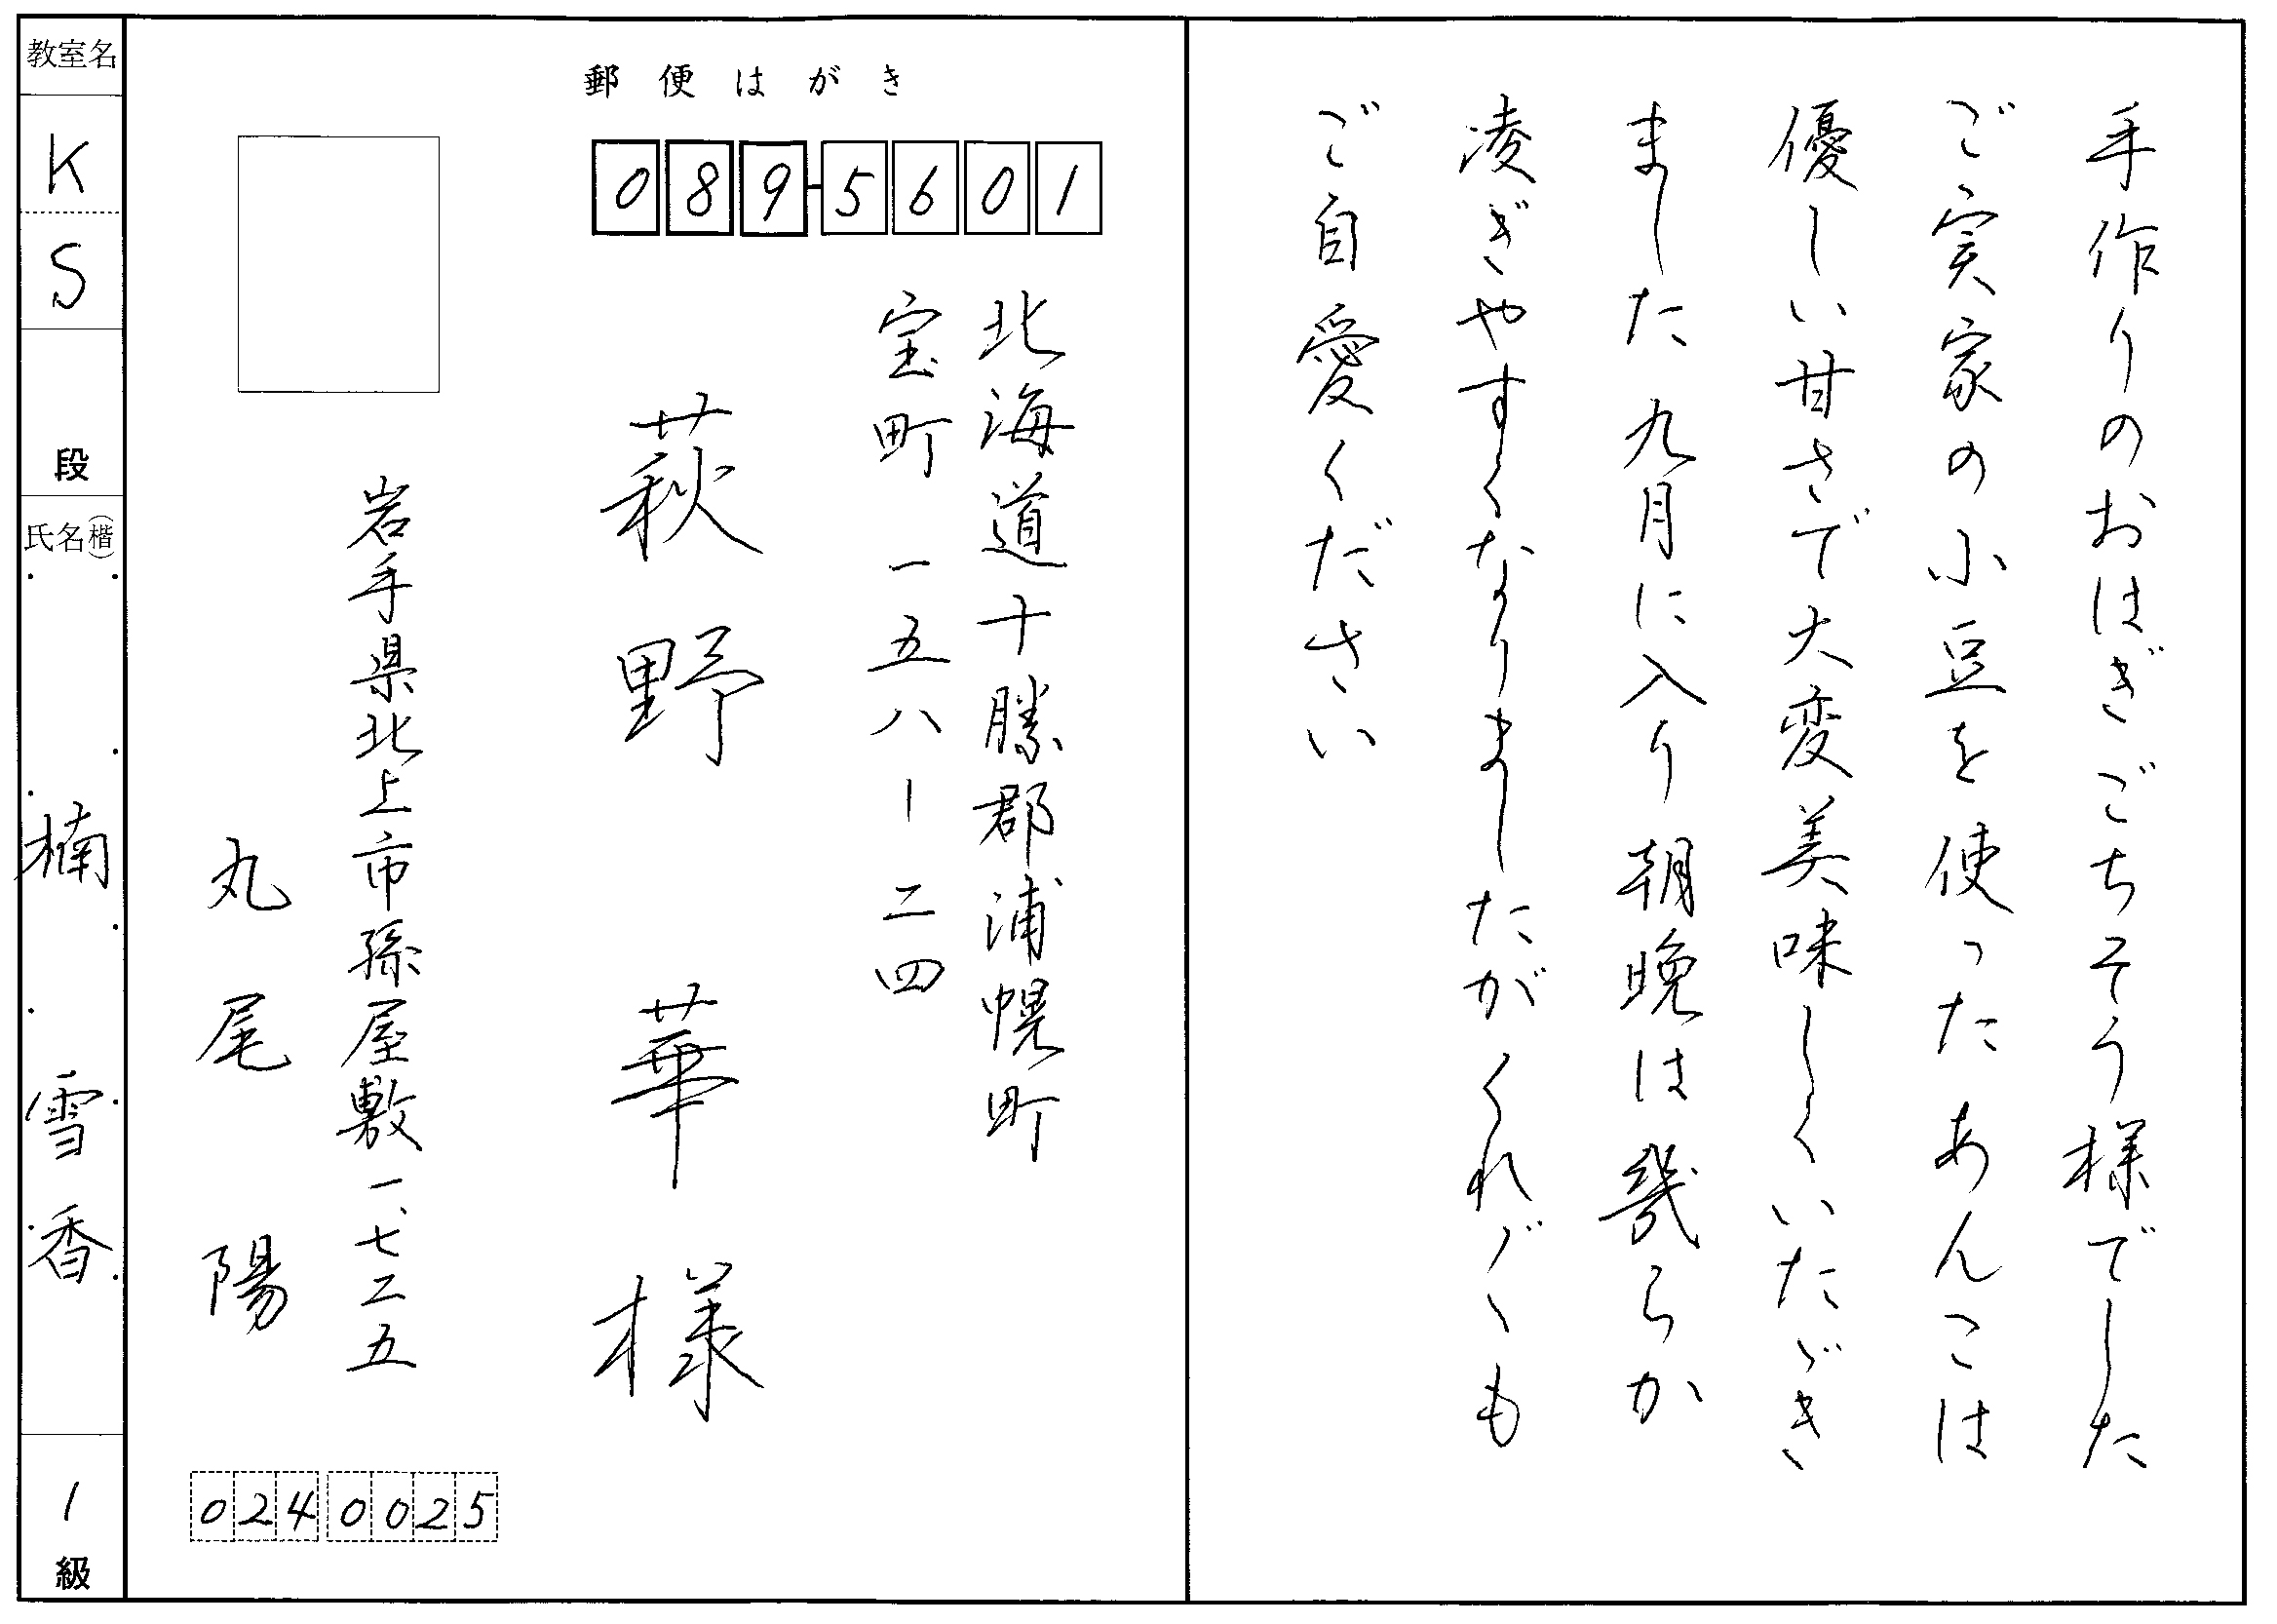 手作りのおはぎごちそう様でした
ご実家の小豆を使ったあんこは
優しい甘さで大変美味しくいたゞき
ました九月に入り朝晩は幾らか
凌ぎやすくなりましたがくれ〴〵も
ご自愛ください
郵便はがき
089-5601
北海道十勝郡浦幌町
宝町一五八ー二四
萩野華様
岩手県北上市孫屋敷一、七二五
丸尾陽
024 0025
教室名
KS
段
氏名(楷)
楠雪香
1級